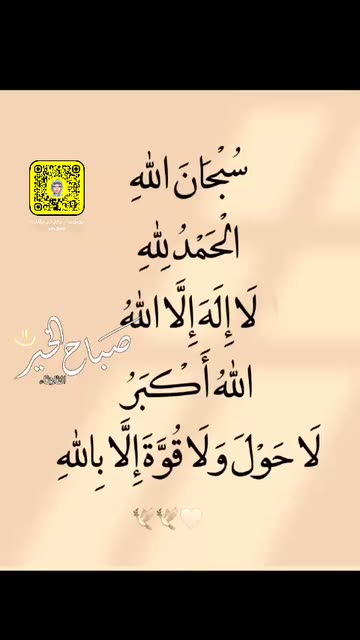 سُبْحَانَ اللهِ
الْحَمْدُ لِلّٰهِ
لَا إِلَهَ إِلَّا اللهُ
صباح الخير
اللهُ أَكْبَرُ
لَا حَوْلَ وَلَا قُوَّةَ إِلَّا بِاللهِ